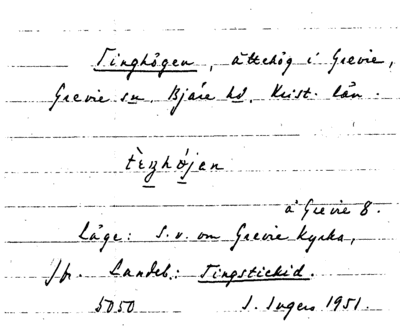 Tinghögen, ättehög i Grevie,
Grevie sn, Bjäre hd, Krist. län.
tèŋhǿjen
å Grevie 8.
Läge: S.v. om Grevie kyrka,
Jfr. Landeb.: Tingstickid.
5050 I. Ingers 1951.